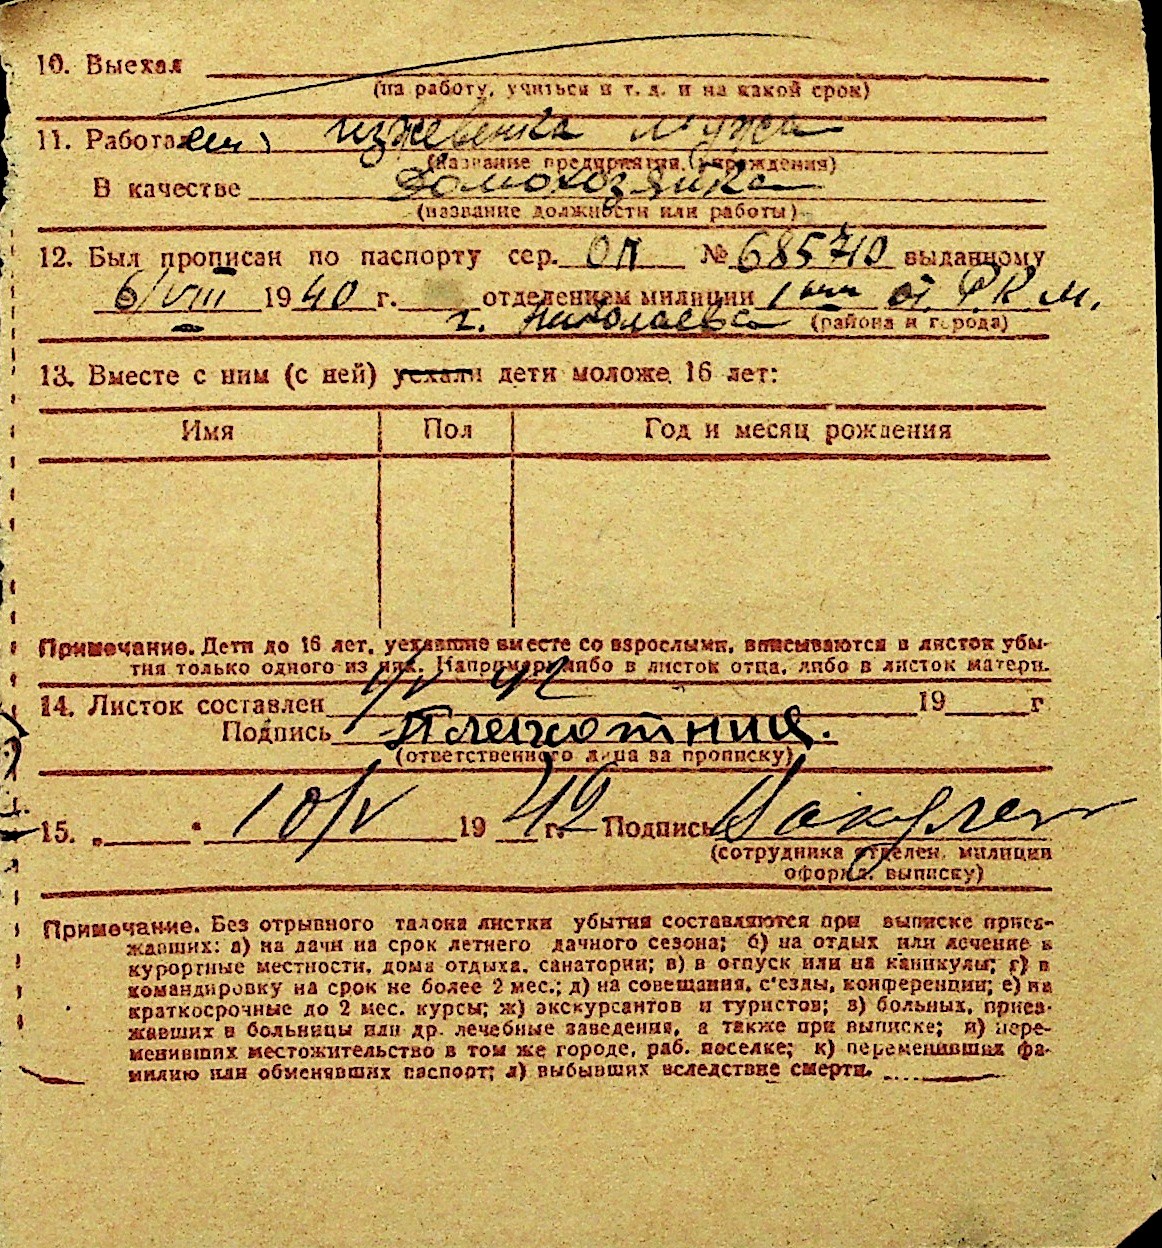 10. Выехал
(на работу, учиться и т. д. и на какой срок)
11. Работал иждевенка мужа
(название предприятия, учреждения)
В качестве домохозяйка
(название должности или работы)
12. Был прописан по паспорту сер. ОП № 685710 выданному
6/VIII 1940 г. отделением милиции 1 от. РКМ.
г. Николаева (района и города)
13. Вместе с ним (с ней) уехали дети моложе 16 лет:
Имя Пол Год и месяц рождения
Примечание. Дети до 16 лет, уехавшие вместе со взрослыми, вписываются в листок убы-
тия только одного из них. Например: либо в листок отца, либо в листок матери.
14. Листок составлен 1/V 42 19 г
Подпись
(ответственного лица за прописку)
15. „ “ 10/V 1942 г. Подпись
(сотрудника отделен. милиции
оформл. выписку)
Примечание. Без отрывного талона листки убытия составляются при выписке приез-
жавших: а) на дачи на срок летнего дачного сезона; б) на отдых или лечение в
курортные местности, дома отдыха, санатории; в) в отпуск или на каникулы; г) в
командировку на срок не более 2 мес.; д) на совещания, с'езды, конференции; е) на
краткосрочные до 2 мес. курсы; ж) экскурсантов и туристов; з) больных, приез-
жавших в больницы или др. лечебные заведения, а также при выписке; и) пере-
менивших местожительство в том же городе, раб. поселке; к) переменивших фа-
милию или обменявших паспорт; л) выбывших вследствие смерти.